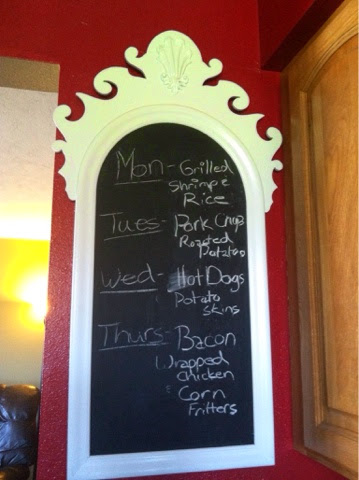 Mon - Grilled
Shrimp &
Rice
Tues - Pork Chop
Roasted
Potatoes
Wed - Hot Dogs
Potato
Skins
Thurs - Bacon
Wrapped
Chicken
& Corn
Fritters